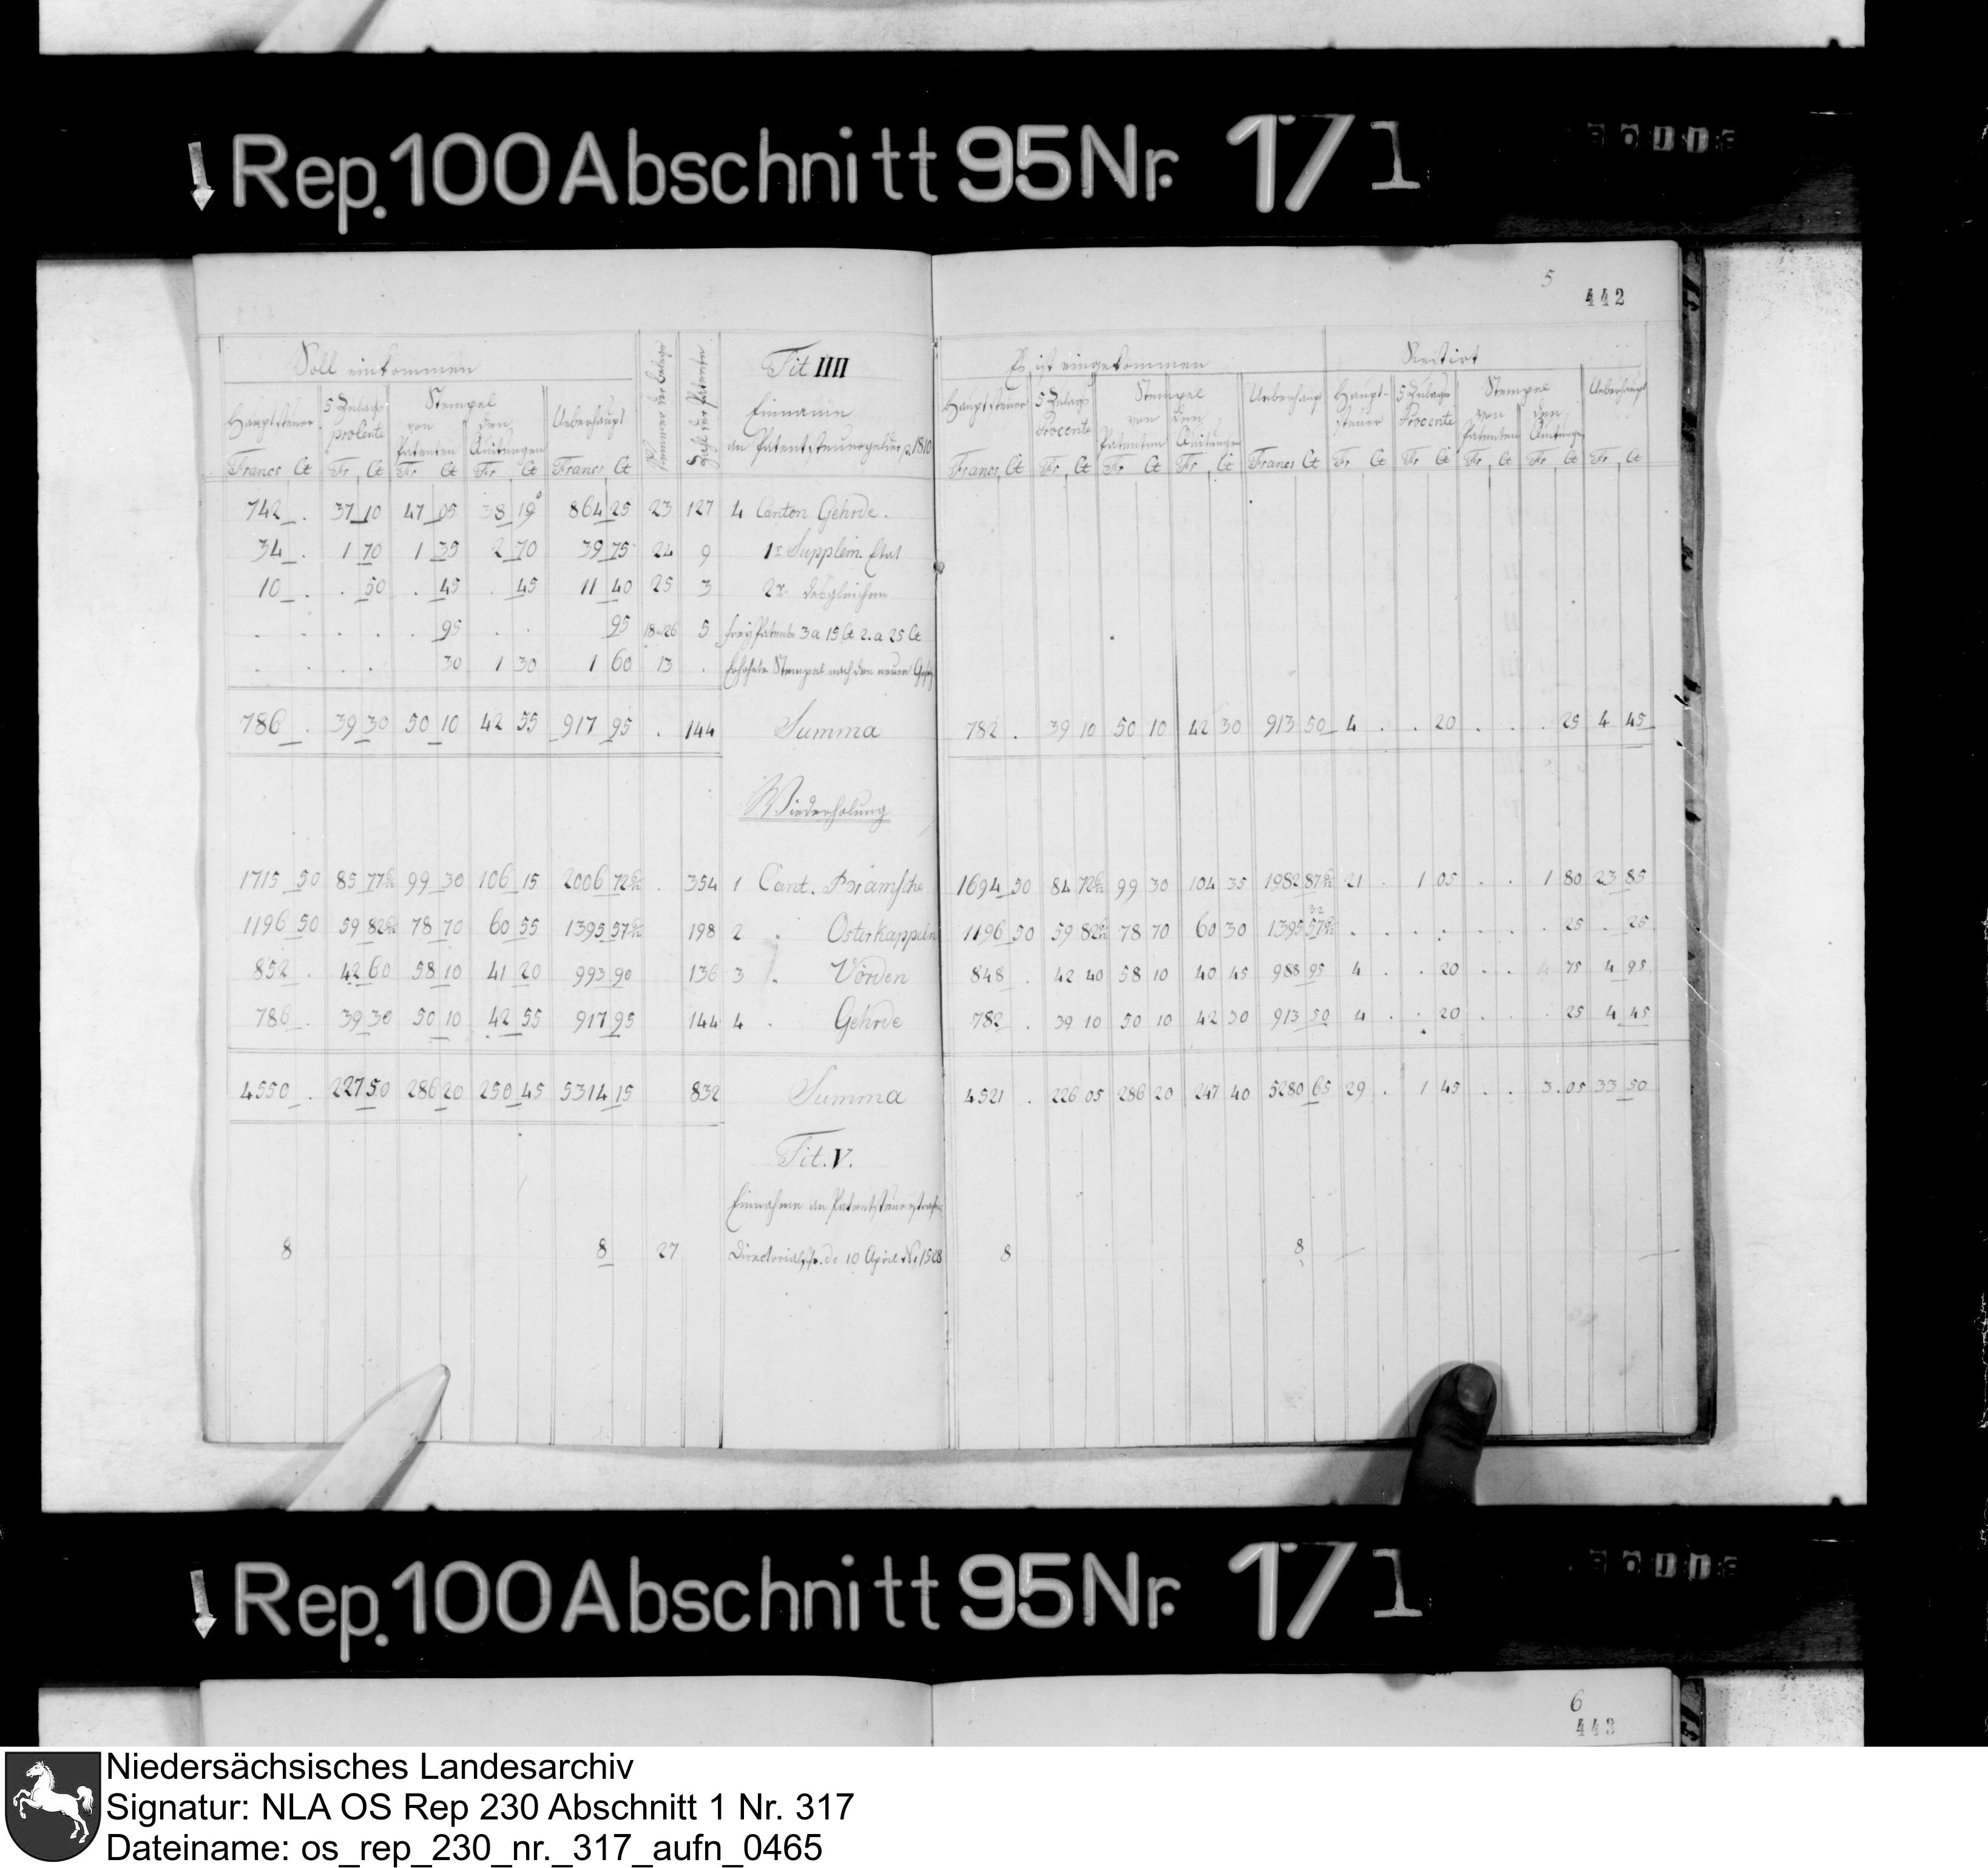 Rep. 100 Abschnitt 95 Nr. 171
5
442
Soll einkommen
Tit IIII
Es ist eingekommen
Restirt
Hauptsteuer 5 Zulags procente Stempel von Patenten den Quitungen Ueberhaupt Nummer der Belege Zahl der Patente
Einnahme
an Patentsteuergelder p. 1810
Hauptsteuer 5 Zulags Procente Stempel von Patenten den Quitungen Ueberhaupt Haupt-steuer 5 Zulags Procente Stempel von Patenten den Quitungen Ueberhaupt
Francs Ct Fr Ct Fr Ct Fr Ct Francs Ct
Francs Ct Fr Ct Fr Ct Fr Ct Francs Ct Fr Ct Fr Ct Fr Ct Fr Ct Fr Ct
742 . 37 10 47 05 38 10 864 25 23 127 4 Canton Gehrde.
34 . 1 70 1 35 2 70 39 75 24 9 1r Supplem. Etat
10 . . 50 . 45 . 45 11 40 25 3 2r desgleichen
. . . . . 95 . . 95 18 u 26 5 frey Patente 3 a 15 Ct 2. a 25 Ct
. . . 30 1 30 1 60 13 . Erhöhete Stempel nach den neuen
786 . 39 30 50 10 42 55 917 95 . 144 Summa 782 . 39 10 50 10 42 30 913 50 4 . . 20 . . . 25 4 45
Wiederholung
1715 50 85 77 99 30 106 15 2006 72 . 354 1 Cant. Bramsche 1694 50 84 72 99 30 104 35 1982 87 21 . 1 05 . . 1 80 23 85
32
1196 50 59 82 78 70 60 55 1395 57 198 2 . Osterkappeln 1196 50 59 82 78 70 60 30 1395 57 . . . . . . . 25 . 25
852 . 42 60 58 10 41 20 993 90 136 3 . Vörden 848 . 42 40 58 10 40 45 988 95 4 . . 20 . . 75 4 95
786 . 39 30 50 10 42 55 917 95 144 4 . Gehrde 782 . 39 10 50 10 42 30 913 50 4 . . 20 . . . 25 4 45
4550 . 227 50 286 20 250 45 5314 15 832 Summa 4521 . 226 05 286 20 247 40 5280 65 29 . 1 45 . . 3 . 05 33 50
Tit. V.
Einnahme an Patentsteuerstrafen
8 8 27 10 April No 1528 8 8
Rep. 100 Abschnitt 95 Nr. 171
6
443
Niedersächsisches Landesarchiv
Signatur: NLA OS Rep 230 Abschnitt 1 Nr. 317
Dateiname: os_rep_230_nr._317_aufn_0465